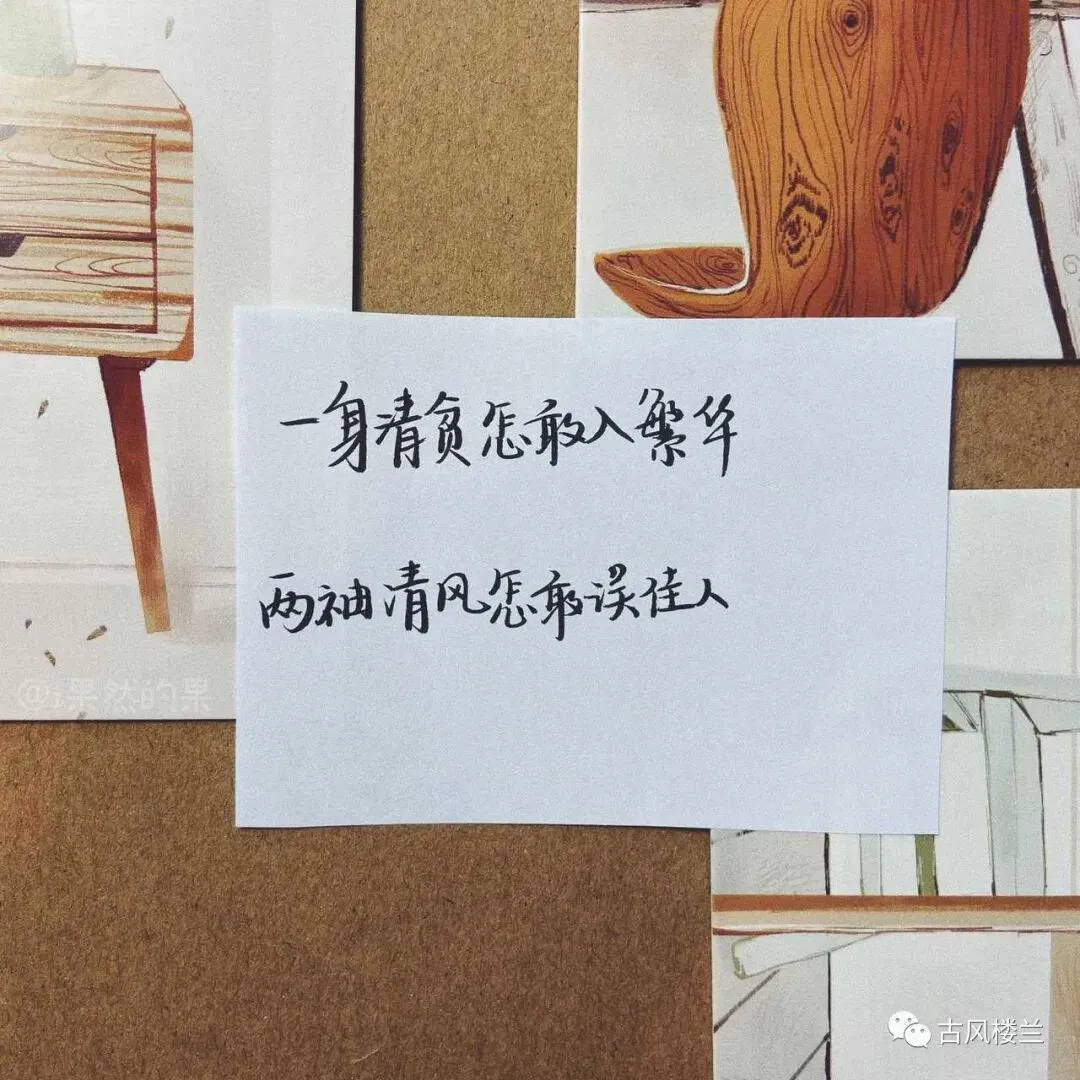 一身清贫怎敢入繁华
两袖清风怎敢误佳人
@i果然的果
古风楼兰